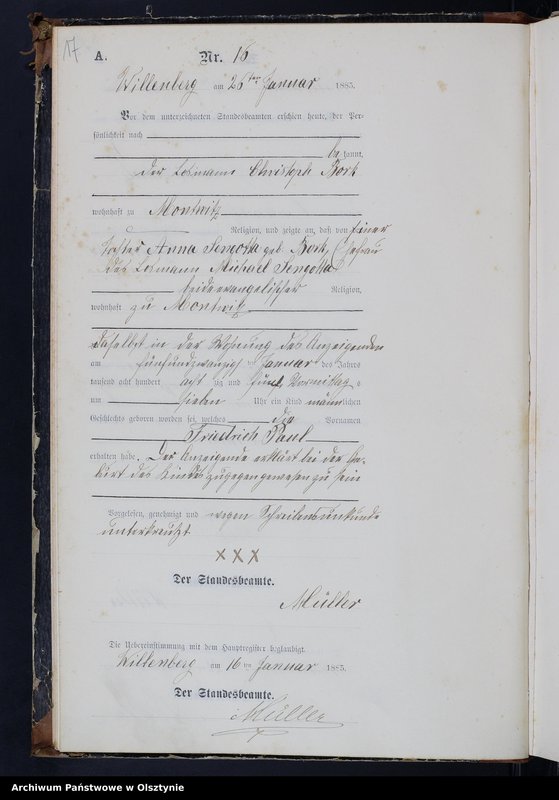 17
A.
Nr. 16
Willenberg am 26ten Januar 1885.
Vor dem unterzeichneten Standesbeamten erschien heute, der Per-
sönlichkeit nach
be kannt,
der Losmann Christoph Bork
wohnhaft zu Montwitz
Religion, und zeigte an, daß von seiner
Tochter Anna Sengotta geb. Bork, Ehefrau
des Losmann Michael Sengotta
beide evangelischer Religion,
wohnhaft zu Montwitz
daselbst in der Wohnung des Anzeigenden
am fünfundzwanzigsten Januar des Jahrs
tausend acht hundert acht zig und fünf, Vormittag s
um sieben Uhr ein Kind männlichen
Geschlechts geboren worden sei, welches die Vornamen
Friedrich Paul
erhalten habe. Der Anzeigende erklärt bei der Ge-
burt des Kindes zugegen gewesen zu sein
Vorgelesen, genehmigt und wegen Schreibensunkunde
unterkreuzt
XXX
Der Standesbeamte.
Müller
Die Uebereinstimmung mit dem Hauptregister beglaubigt.
Willenberg am 16ten Januar 1885.
Der Standesbeamte.
Müller
Archiwum Państwowe w Olsztynie